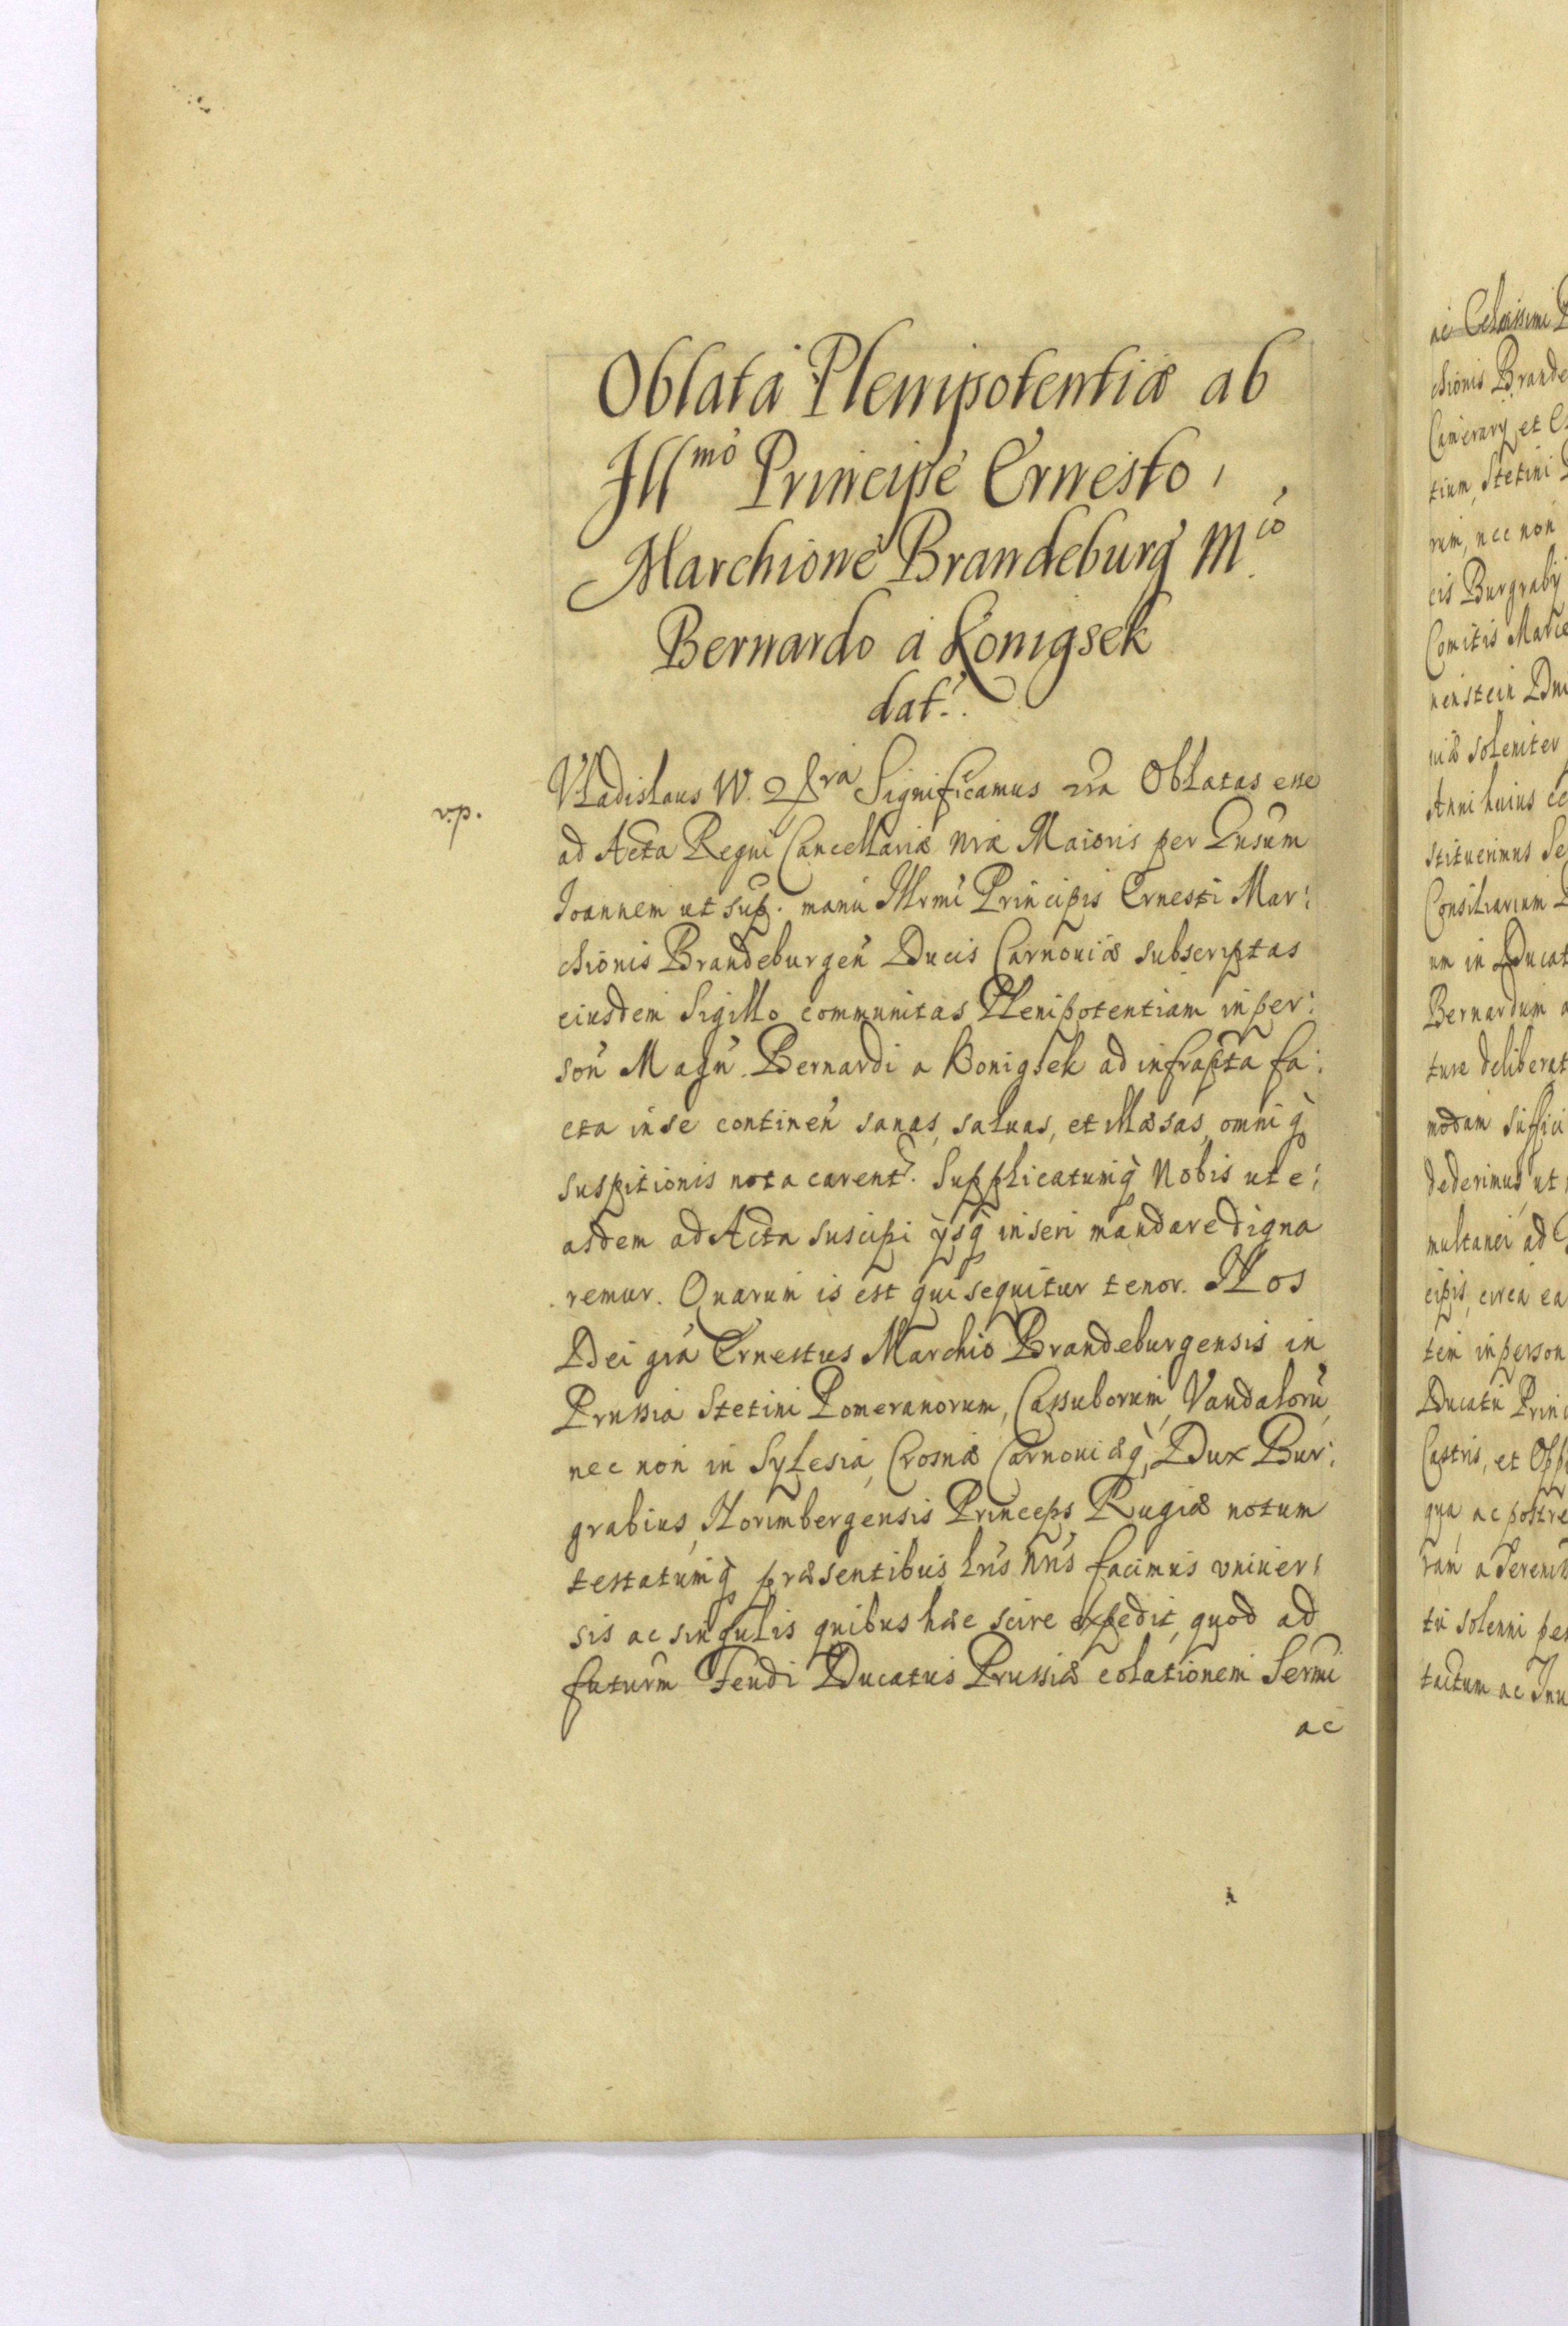 Oblata Plenipotentiæ ab
Ill^mo Principe Ernesto,
Marchione Brandeburg M.^co
Bernardo a Konigsek
dat.
Vladislaus IV. Significamus Oblatas esse
ad Acta Regni Cancellariæ nræ Maioris per Gnsum
Ioannem ut sup. manu Illrmi Principis Ernesti Mar:
chionis Brandeburgen Ducis Carnouiæ subscriptas
eiusdem Sigillo communitas Plenipotentiam in per:
son Magn. Bernardi a Konigsek ad infrascpta fa:
cta in se continen sanas, saluas, et illæsas, omniq
suspitionis nota carent. Supplicatumq Nobis ut e:
asdem ad Acta suscipi ysq inseri mandare digna
remur. Quarum is est qui sequitur tenor. Nos
Dei gra Ernestus Marchio Brandeburgensis in
Prussia Stetini Pomeranorum, Cassuborum, Vandaloru,
nec non in Sylesia, Crosnæ Carnouiæq, Dux Bur:
grabius, Norimbergensis Princeps Rugiæ notum
testatumq præsentibus lris nris facimus vniuer:
sis ac singulis quibus hæc scire expedit, quod ad
futurm Feudi Ducatus Prussiæ colationem Sermi
ac
ac Celsissimi
chionis Brande
Camerary et
tium, Stetini
rum, nec non
cis Burgraby
Comitis
nenstein
uiæ soleniter
Anni huius
stituerimus
Consiliarium
um in Ducat
Bernardum a
ture deliberat
modam suffici
dederimus, ut
multanei ad
cipis, circa ea
tem in person
Ducatu Princ
Castris, et Opp
qua, ac postre
ram a Sereniss
tu solenni per
tactum ac Inu